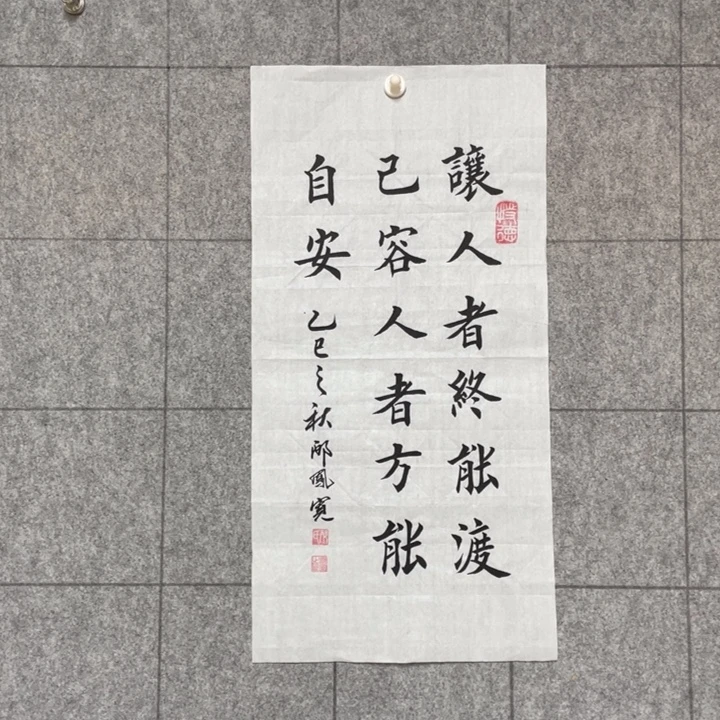 讓人者終能渡
己容人者方能
自安
乙巳之秋邴鳳寬